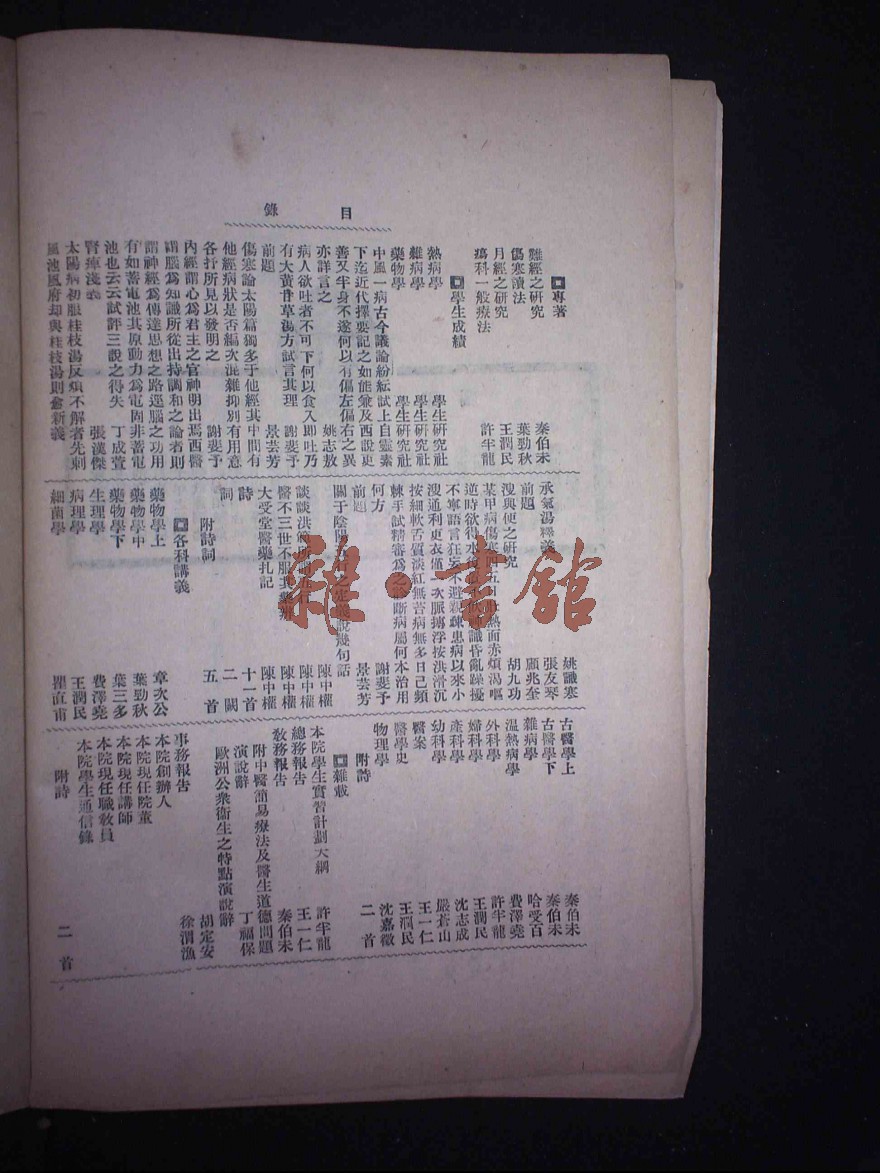 目錄
專著
難經之研究 秦伯未
傷寒讀法 葉勁秋
月經之研究 王潤民
瘍科一般療法 許半龍
學生成績
熱病學 學生研究社
雜病學 學生研究社
藥物學 學生研究社
中風一病古今議論紛紜試上自靈素
下迄近代擇要記之如能兼及西說更
善又半身不遂何以有偏左偏右之異
亦詳言之 姚志敖
病人欲吐者不可下何以食入即吐乃
有大黃甘草湯方試言其理 謝斐予
前題 景芸芳
傷寒論太陽篇獨多于他經其中間有
他經病狀是否編次混雜抑別有用意
各抒所見以發明之 謝斐予
內經謂心爲君主之官神明出焉西醫
謂腦爲知識所從出持調和之論者則
謂神經爲傳達思想之路逕腦之功用
有如蓄電池其原動力爲電固非蓄電
池也云云試評三說之得失 丁成萱
腎痺淺義 張漢傑
太陽病初服桂枝湯反煩不解者先刺
風池風府却與桂枝湯則愈新義
承氣湯釋義 姚讖寒
前題 張友琴
溲與便之研究 顧兆奎
某甲病傷寒四五日壯熱面赤煩渴嘔 胡九功
逆時欲得水 神識昏亂躁擾
不寧語言狂妄不避親疎患病以來小
溲通利更衣僅一次脈摶浮按洪滑沉
按細軟舌質淡紅無苔病無多日已頻
棘手試精審爲之診斷病屬何本治用
何方 謝斐予
前題 景芸芳
關于陰陽五行之定義說幾句話
陳中權
談談洪 陳中權
醫不三世不服其藥辨 陳中權
大受堂醫藥扎記 陳中權
詩 十一首
詞 二闋
附詩詞 五首
各科講義
藥物學上 章次公
藥物學中 葉勁秋
藥物學下 葉三多
生理學 費澤堯
病理學 王潤民
細菌學 瞿直甫
古醫學上 秦伯未
古醫學下 秦伯未
雜病學 哈受百
溫熱病學 費澤堯
外科學 許半龍
婦科學 王潤民
產科學 沈志成
幼科學 嚴蒼山
醫案 王一仁
醫學史 王潤民
物理學 沈嘉徵
附詩 二首
雜載
本院學生實習計劃大綱 許半龍
總務報告 王一仁
教務報告 秦伯未
附中醫簡易療法及醫生道德問題
演說辭 丁福保
歐洲公衆衛生之特點演說辭
胡定安
事務報告 徐渭漁
本院創辦人
本院現任院董
本院現任講師
本院現任職教員
本院學生通信錄
附詩 二首
雜·書館